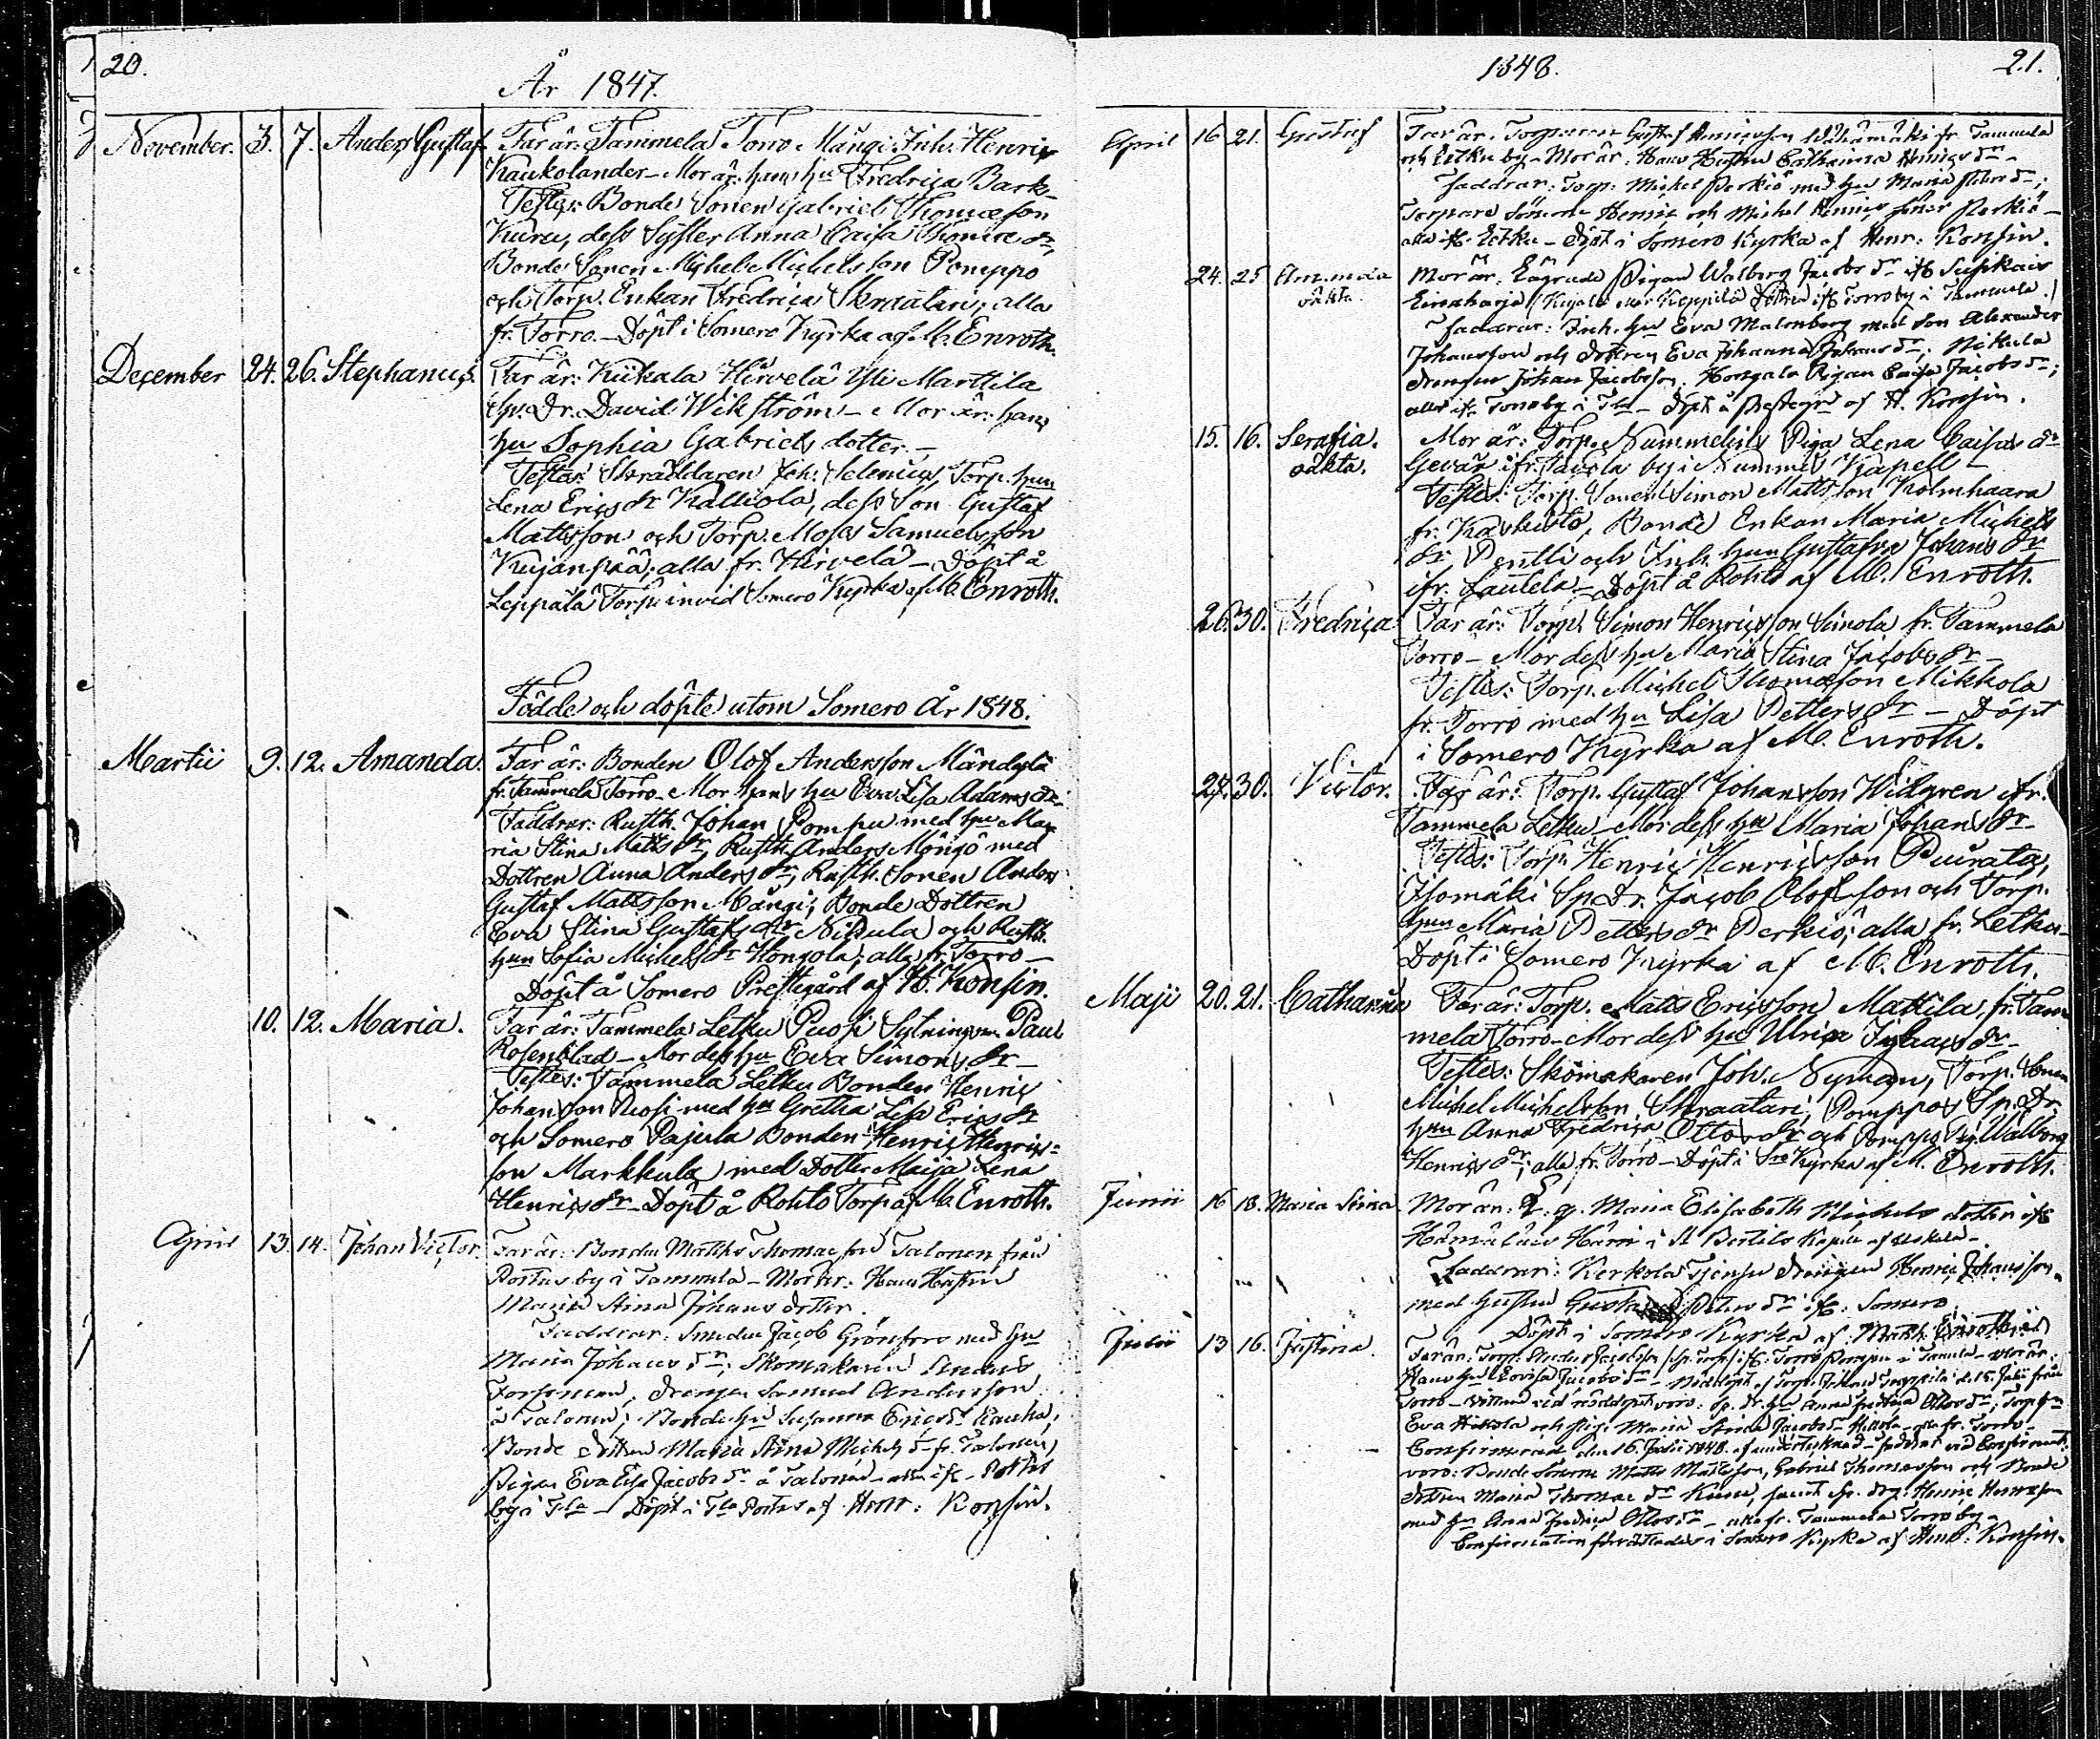 20.
År 1847.
November. 3. 7. Anders Gustaf. Far är: Tammela Torro Mångi Inh. Henric
Kaukolander - Mor är: hans hu Fredrica Bark -
Testes: Bonde Sonen Gabriel Thomæson
Kuru, dess Syster Anna Caisa Thomæ dr,
Bonde Sonen Michel Michelsson Pomppo
och Torp. Enkan Fredrica Skraatari; alla
fr. Torro. - Döpt i Somero Kyrka af M. Enroth.
December 24. 26. Stephanus. Far är: Kiikala Hirvelä Yli Marttila
Sp. Dr. David Wikström - Mor är: hans
hu Sophia Gabriels dotter. -
Testes: Skräddaren Joh: Selenius, Torp. hun
Lena Erics dr Kalliola, dess Son Gustaf
Mattsson och Torp. Moses Samuelsson
Kujanpää; alla fr. Hirvelä - Döpt å
Leppälä Torp invid Somero Kyrka af M. Enroth.
Födde och döpte utom Somero År 1848.
Martii 9. 12. Amanda. Far är: Bonden Olof Andersson Mändylä
fr. Tammela Torro - Mor hans hu Eva Lisa Adams dr -
Faddrar: Rusth. Johan Pompu med hu Ma
ria Stina Matts dr, Rusth. Anders Möngö med
Dottren Anna Anders dr; Rusth. Sonen Anders
Gustaf Mattsson Mångi; Bonde Dottren
Eva Stina Gustafs dr Nikula och Rusth.
hun Sofia Michels dr Hongola; alla fr. Torro -
Döpt å Somero Prestegård af H. Konsin.
10. 12. Maria. Far är: Tammela Letku Puosi Sytningsm. Paul
Rosenblad - Mor dess hu Eva Simons dr -
Testes: Tammela Letku Bonden Henric
Johansson Puosi med hu Gretha Lisa Erics dr
och Somero Pajula Bonden Henric Henrics=
son Markkula med Dotter Maija Lena
Henrics dr - Döpt å Rohto Torp af M. Enroth.
April 13 14. Johan Victor. Far är: Bonden Matths Thomæson Talonen från
Portas by i Tammela - Mor är: Hans Hustru
Maria Stina Johans dotter.
Faddrar: Smeden Jacob Grönfors med hu
Maria Johans dr; Skomakaren Anders
Forsman, drengen Samuel Andersson
å Talonen; Bonde hu Susanna Erics dr Kauha,
Bonde dottren Maria Stina Michels dr fr. Talonen,
Pigan Eva Lisa Jacobs dr å Talonen - alla ifr. Portas
by i Tla - Döpt i Tla Portas af Henr: Konsin.
1848. 21.
April 16 21. Gustaf Far är: Torparen Gustaf Henricsson fr. Tammela
och Letku by - Mor är: Hans Hustru Catharina Henrics dr -
Faddrar: Torp: Michel Perkiö med hu Maria Peters dr;
Torpare Sönerne Henric och Michel Henrics söner Perkiö -
alla ifr. Letku - Döpt i Somero Kyrka af Henr: Konsin.
24. 25 Amanda Mor är: Lägrade Pigan Walborg Jacobs dr ifr
oäkta. ifr Torro by i Tammela.)
Faddrar: Inh. hu Eva Malmberg med Son Alexander
Johansson och dottren Eva Johanna Johans dr; Nikula
drengen Johan Jacobsson, Hongala Pigan Caisa Jacobs dr;
alla ifr. Torro by i Tla - Döpt å Prestegrd af H. Konsin.
15. 16. Serafia. Mor är: Torp. Nummelins Piga Lena Caisa dr
oäkta. Gevär ifr. Tavola by i Nummis Kapell -
Testes: Torp. Sonen Simon Mattsson Kolmhaara
fr. Kaskisto, Bonde Enkan Maria Michels
dr Pentti och Inh. hun Gustafva Johans dr
ifr. Lautela - Döpt å Rohto af M. Enroth.
26. 30. Fredrica Far är: Torp. Simon Henricsson Simola fr. Tammela
Torro - Mor dess hu Maria Stina Jacobs dr -
Testes: Torp. Michel Thomæson Mikkola
fr. Torro med hu Lisa Petters dr - Döpt
i Somero Kyrka af M. Enroth.
27. 30. Victor. Far är: Torp. Gustaf Johansson Widgren ifr.
Tammela Letku - Mor dess hu Maria Johans dr
Testes: Torp. Henric Henricsson Puirata,
Isomäki Sp. Dr. Jacob Olofsson och Torp.
hun Maria Petters dr Perkiö; alla fr. Letku -
Döpt i Somero Kyrka af M. Enroth.
Maji 20. 21. Catharina Far är: Torp. Matts Ericsson Mattila, fr. Tam
mela Torro - Mor dess hu Ulrica Isaacs dr -
Testes: Skomakaren Joh. Nyman, Torp. Sonen
Michel Michelsson Skraatari, Pomppos Sp. Dr.
hun Anna Fredrica Ottos dr och Pomppo Pig. Walborg
Henrics dr; alla fr. Torro - Döpt i Sro Kyrka af M. Enroth.
Junii 16 18. Maria Stina Mor är: Maria Elisabeth Michels dotter ifr
i St Bertils Kapell af Uskela -
Faddrar: Kerkola drängen Henric Johansson
med hustru Gustava Peters dr ifr. Somero
Döpt i Somero Kyrka af Matth: Enroth
Julii 13 16. Justina. Far är: Torp: Anders Jacobsson ifr. Torro i Tamela - Mor är:
Hans hu Lovisa Jacobs dr - Nöddöpt af d. 15. Julii från
Torro - Vittnen vid nöddopet voro: Sp. dr. hu Anna Fredrica Ottos dr; Torp hu
Eva Mikkola och Pig: Maria Stina Jacobs dr Mikkola - alla fr. Torro -
Confirmerad den 16. Julii 1848. af undertecknad - Faddrar vid Confirmat.
voro: Bonde Sönerne Matts Mattsson, Gabriel Thomæsson och Bonde
dottren Maria Thomæ dr Kuru, samt Sp. drg: Henric Henricsson
med hu Anna Fredrica Ottos dr - alla fr. Tammela Torro by -
Confirmation förrättades i Somero Kyrka af Henr: Konsin.